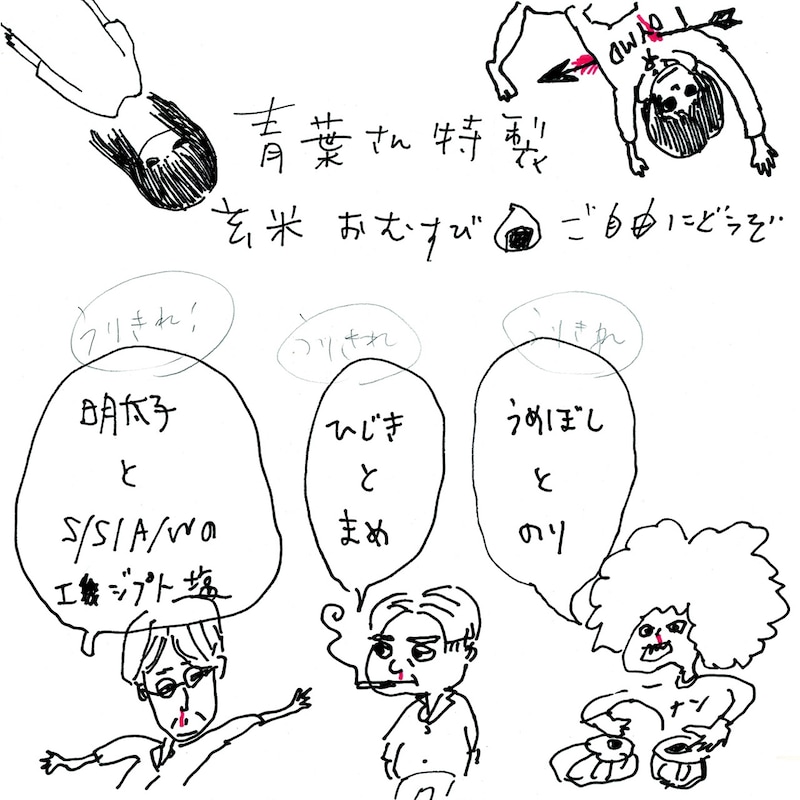 青葉さん特製
玄米おむすび🍙ご自由にどうぞ
うりきれ!
明太子
と
S/S/A/Wの
エジプト塩
うりきれ
ひじき
と
まめ
うりきれ
うめぼし
と
のり